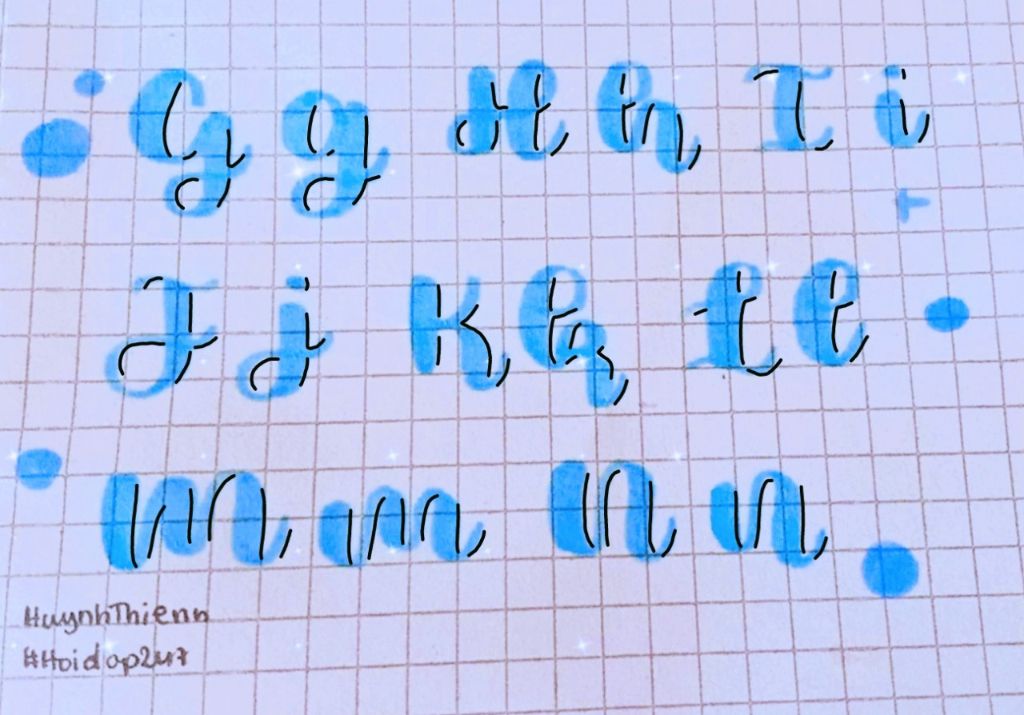 G g H h I i
J j K k L l
M m N n
HuynhThienn
#Hoidap247